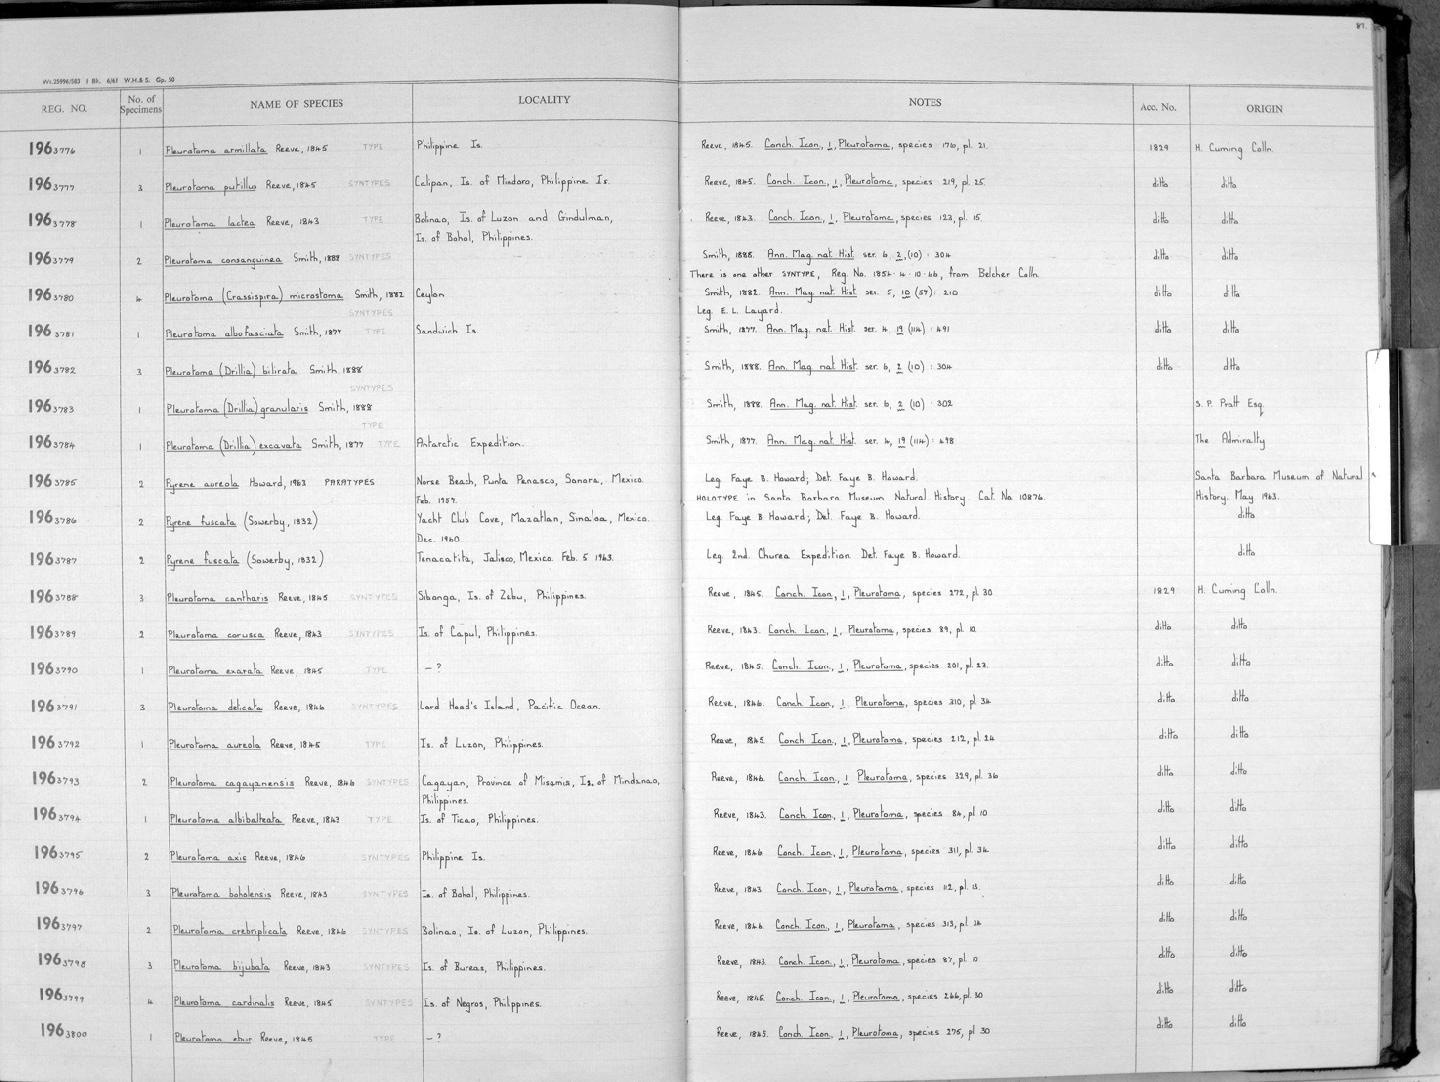 87.
Wt.25996/583 1 Bk. 6/61 W.H.& S. Gp. 50
REG. NO. No. of Specimens NAME OF SPECIES LOCALITY NOTES Acc. No. ORIGIN
1963776 1 Pleurotoma armillata Reeve, 1845 TYPE Philippine Is. Reeve, 1845. Conch. Icon., 1, Pleurotoma, species 176, pl. 21. 1829 H. Cuming Colln.
1963777 3 Pleurotoma putillus Reeve, 1845 SYNTYPES Calipan, Is. of Mindoro, Philippine Is. Reeve, 1845. Conch. Icon., 1, Pleurotoma, species 219, pl. 25. ditto ditto
1963778 1 Pleurotoma lactea Reeve, 1843 TYPE Bolinao, Is. of Luzon and Gindulman, Reeve, 1843. Conch. Icon., 1, Pleurotoma, species 123, pl. 15. ditto ditto
Is. of Bohol, Philippines.
1963779 2 Pleurotoma consanguinea Smith, 1888 SYNTYPES Smith, 1888. Ann. Mag. nat. Hist. ser. 6, 2, (10) : 304 ditto ditto
There is one other SYNTYPE, Reg. No. 1854·4·10·46, from Belcher Colln.
1963780 4 Pleurotoma (Crassispira) microstoma Smith, 1882 Ceylon Smith, 1882. Ann. Mag. nat. Hist. ser. 5, 10 (57) : 210 ditto ditto
SYNTYPES Leg. E. L. Layard.
1963781 1 Pleurotoma albofasciata Smith, 1877 TYPE Sandwich Is. Smith, 1877. Ann. Mag. nat. Hist. ser. 4. 19 (114) : 491 ditto ditto
1963782 3 Pleurotoma (Drillia) bilirata Smith 1888 Smith, 1888. Ann. Mag. nat. Hist. ser. 6, 2 (10) : 304 ditto ditto
SYNTYPES
1963783 1 Pleurotoma (Drillia) granularis Smith, 1888 Smith, 1888. Ann. Mag. nat. Hist. ser. 6, 2 (10) : 302 S. P. Pratt Esq.
TYPE
1963784 1 Pleurotoma (Drillia) excavata Smith, 1877 TYPE Antarctic Expedition. Smith, 1877. Ann. Mag. nat. Hist. ser. 4, 19 (114) : 498 The Admiralty
1963785 2 Pyrene aureola Howard, 1963 PARATYPES Norse Beach, Punta Penasco, Sonora, Mexico. Leg. Faye B. Howard; Det. Faye B. Howard. Santa Barbara Museum of Natural
Feb. 1957. HOLOTYPE in Santa Barbara Museum Natural History Cat. No 10876. History. May 1963.
1963786 2 Pyrene fuscata (Sowerby, 1832) Yacht Club Cove, Mazatlan, Sinaloa, Mexico. Leg. Faye B Howard; Det. Faye B. Howard. ditto
Dec. 1960.
1963787 2 Pyrene fuscata (Sowerby, 1832) Tenacatita, Jalisco, Mexico. Feb. 5 1963. Leg. 2nd. Churea Expedition. Det. Faye B. Howard. ditto
1963788 3 Pleurotoma cantharis Reeve, 1845 SYNTYPES Sibonga, Is. of Zebu, Philippines. Reeve, 1845. Conch. Icon., 1, Pleurotoma, species 272, pl. 30. 1829 H. Cuming Colln.
1963789 2 Pleurotoma corusca Reeve, 1843 SYNTYPES Is. of Capul, Philippines. Reeve, 1843. Conch. Icon., 1, Pleurotoma, species 89, pl. 10. ditto ditto
1963790 1 Pleurotoma exarata Reeve 1845 TYPE — ? Reeve, 1845. Conch. Icon., 1, Pleurotoma, species 201, pl. 23. ditto ditto
1963791 3 Pleurotoma delicata Reeve, 1846 SYNTYPES Lord Hood's Island, Pacific Ocean. Reeve, 1846. Conch. Icon., 1. Pleurotoma, species 310, pl. 34. ditto ditto
1963792 1 Pleurotoma aureola Reeve, 1845 TYPE Is. of Luzon, Philippines. Reeve, 1845. Conch. Icon., 1, Pleurotoma, species 212, pl. 24 ditto ditto
1963793 2 Pleurotoma cagayanensis Reeve, 1846 SYNTYPES Cagayan, Province of Misamis, Is. of Mindanao, Reeve, 1846. Conch. Icon., 1 Pleurotoma, species 329, pl. 36 ditto ditto
Philippines.
1963794 1 Pleurotoma albibalteata Reeve, 1843 TYPE Is. of Ticao, Philippines. Reeve, 1843. Conch. Icon., 1, Pleurotoma, species 84, pl 10 ditto ditto
1963795 2 Pleurotoma axis Reeve, 1846 SYNTYPES Philippine Is. Reeve, 1846 Conch. Icon., 1, Pleurotoma, species 311, pl. 34. ditto ditto
1963796 3 Pleurotoma boholensis Reeve, 1843 SYNTYPES Is. of Bohol, Philippines. Reeve, 1843 Conch. Icon., 1, Pleurotoma, species 112, pl. 13. ditto ditto
1963797 2 Pleurotoma crebriplicata Reeve, 1846 SYNTYPES Bolinao, Is. of Luzon, Philippines. Reeve, 1846. Conch. Icon., 1, Pleurotoma, species 313, pl. 34 ditto ditto
1963798 3 Pleurotoma bijubata Reeve, 1843 SYNTYPES Is. of Bureas, Philippines. Reeve, 1843. Conch. Icon., 1, Pleurotoma, species 87, pl. 10 ditto ditto
1963799 4 Pleurotoma cardinalis Reeve, 1845 SYNTYPES Is. of Negros, Philippines. Reeve, 1845. Conch. Icon., 1, Pleurotoma, species 266, pl. 30 ditto ditto
1963800 1 Pleurotoma ebur Reeve, 1845 TYPE — ? Reeve, 1845. Conch. Icon., 1, Pleurotoma, species 275, pl 30 ditto ditto